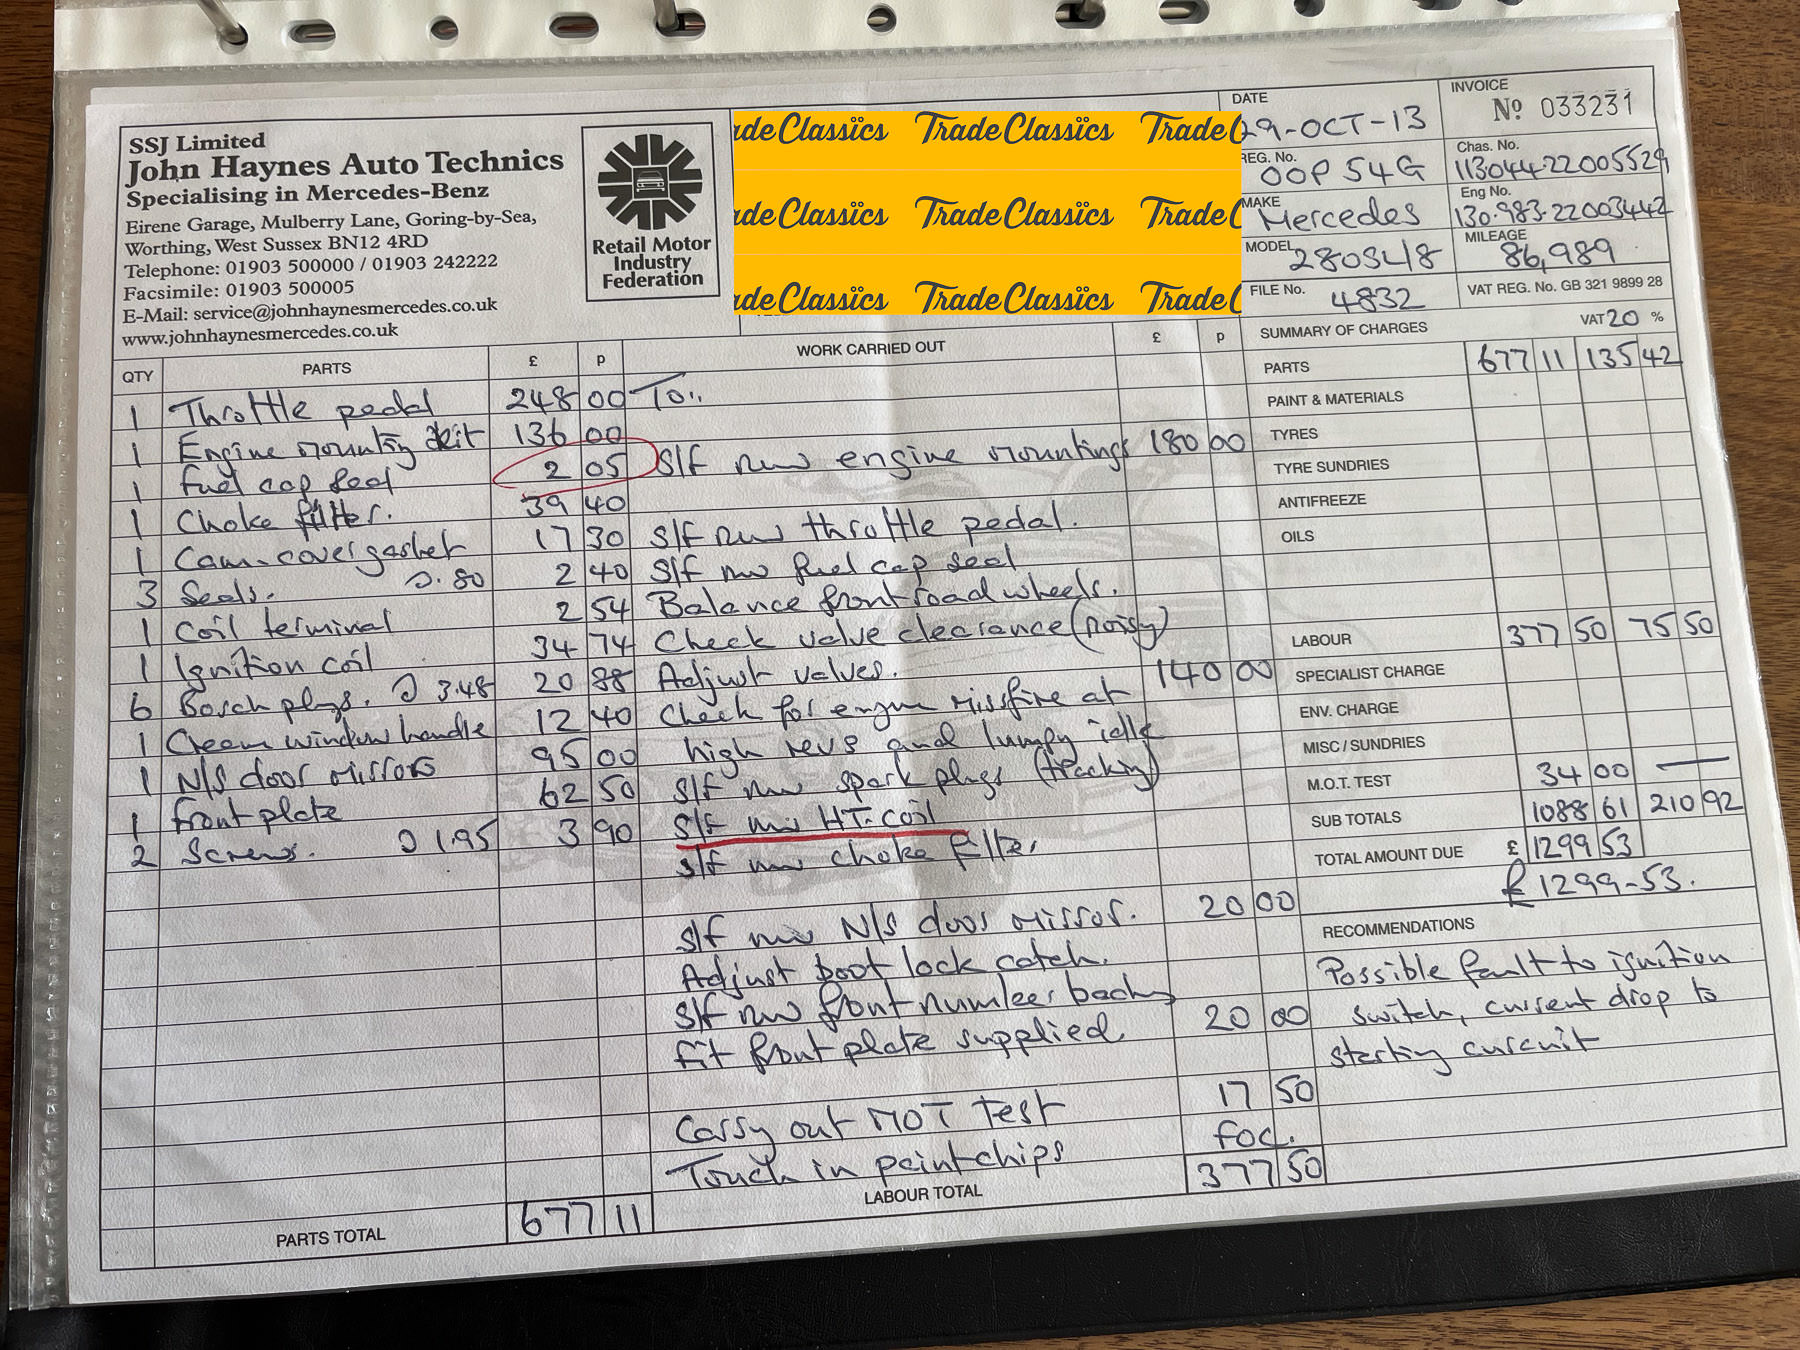 SSJ Limited
John Haynes Auto Technics
Specialising in Mercedes-Benz
Eirene Garage, Mulberry Lane, Goring-by-Sea,
Worthing, West Sussex BN12 4RD
Telephone: 01903 500000 / 01903 242222
Facsimile: 01903 500005
E-Mail: service@johnhaynesmercedes.co.uk
www.johnhaynesmercedes.co.uk
Retail Motor
Industry
Federation
ade Classics Trade Classics Trade C
ade Classics Trade Classics Trade C
ade Classics Trade Classics Trade C
DATE
29-OCT-13
INVOICE
No 033231
REG. No.
OOP 54G
Chas. No.
113044-22005529
MAKE
Mercedes
Eng No.
130.983.22003442
MODEL
280SL/8
MILEAGE
86,989
FILE No. 4832
VAT REG. No. GB 321 9899 28
QTY PARTS £ p
1 Throttle pedal 248 00
1 Engine mounting kit 136 00
1 Fuel cap seal 2 05
1 Choke filter. 39 40
1 Cam-cover gasket 17 30
3 Seals. @ .80 2 40
1 Coil terminal 2 54
1 Ignition coil 34 74
6 Bosch plugs. @ 3.48 20 88
1 Cream window handle 12 40
1 N/S door mirror 95 00
1 Front plate 62 50
2 Screws. @ 1.95 3 90
PARTS TOTAL 677 11
WORK CARRIED OUT £ p
To..
S/f new engine mountings 180 00
S/f new throttle pedal.
S/f new fuel cap seal
Balance front road wheels.
Check valve clearance (noisy)
Adjust valves. 140 00
Check for engine missfire at
high revs and lumpy idle
S/f new spark plugs (tracking)
S/f new HT-coil
S/f new choke filter
S/f new N/S door mirror. 20 00
Adjust boot lock catch.
S/f new front number backing
Fit front plate supplied. 20 00
Carry out MOT test 17 50
Touch in paint chips foc.
LABOUR TOTAL 377 50
SUMMARY OF CHARGES VAT 20 %
PARTS 677 11 135 42
PAINT & MATERIALS
TYRES
TYRE SUNDRIES
ANTIFREEZE
OILS
LABOUR 377 50 75 50
SPECIALIST CHARGE
ENV. CHARGE
MISC / SUNDRIES
M.O.T. TEST 34 00 —
SUB TOTALS 1088 61 210 92
TOTAL AMOUNT DUE £ 1299 53
£1299-53.
RECOMMENDATIONS
Possible fault to ignition
switch, current drop to
starting curcuit